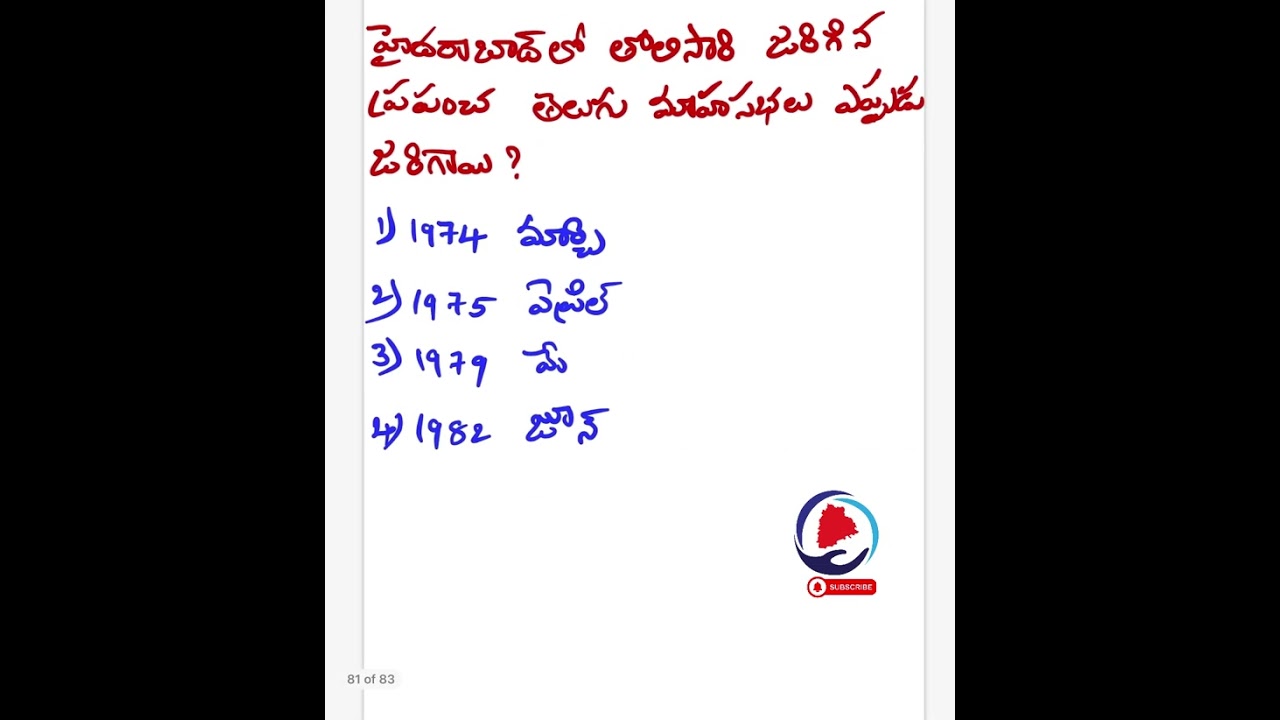 హైదరాబాద్‌లో తొలిసారి జరిగిన
ప్రపంచ తెలుగు మాహసభలు ఎప్పుడు
జరిగాయి ?
1) 1974 మార్చి
2) 1975 ఏప్రిల్
3) 1979 మే
4) 1982 జూన్
SUBSCRIBE
81 of 83